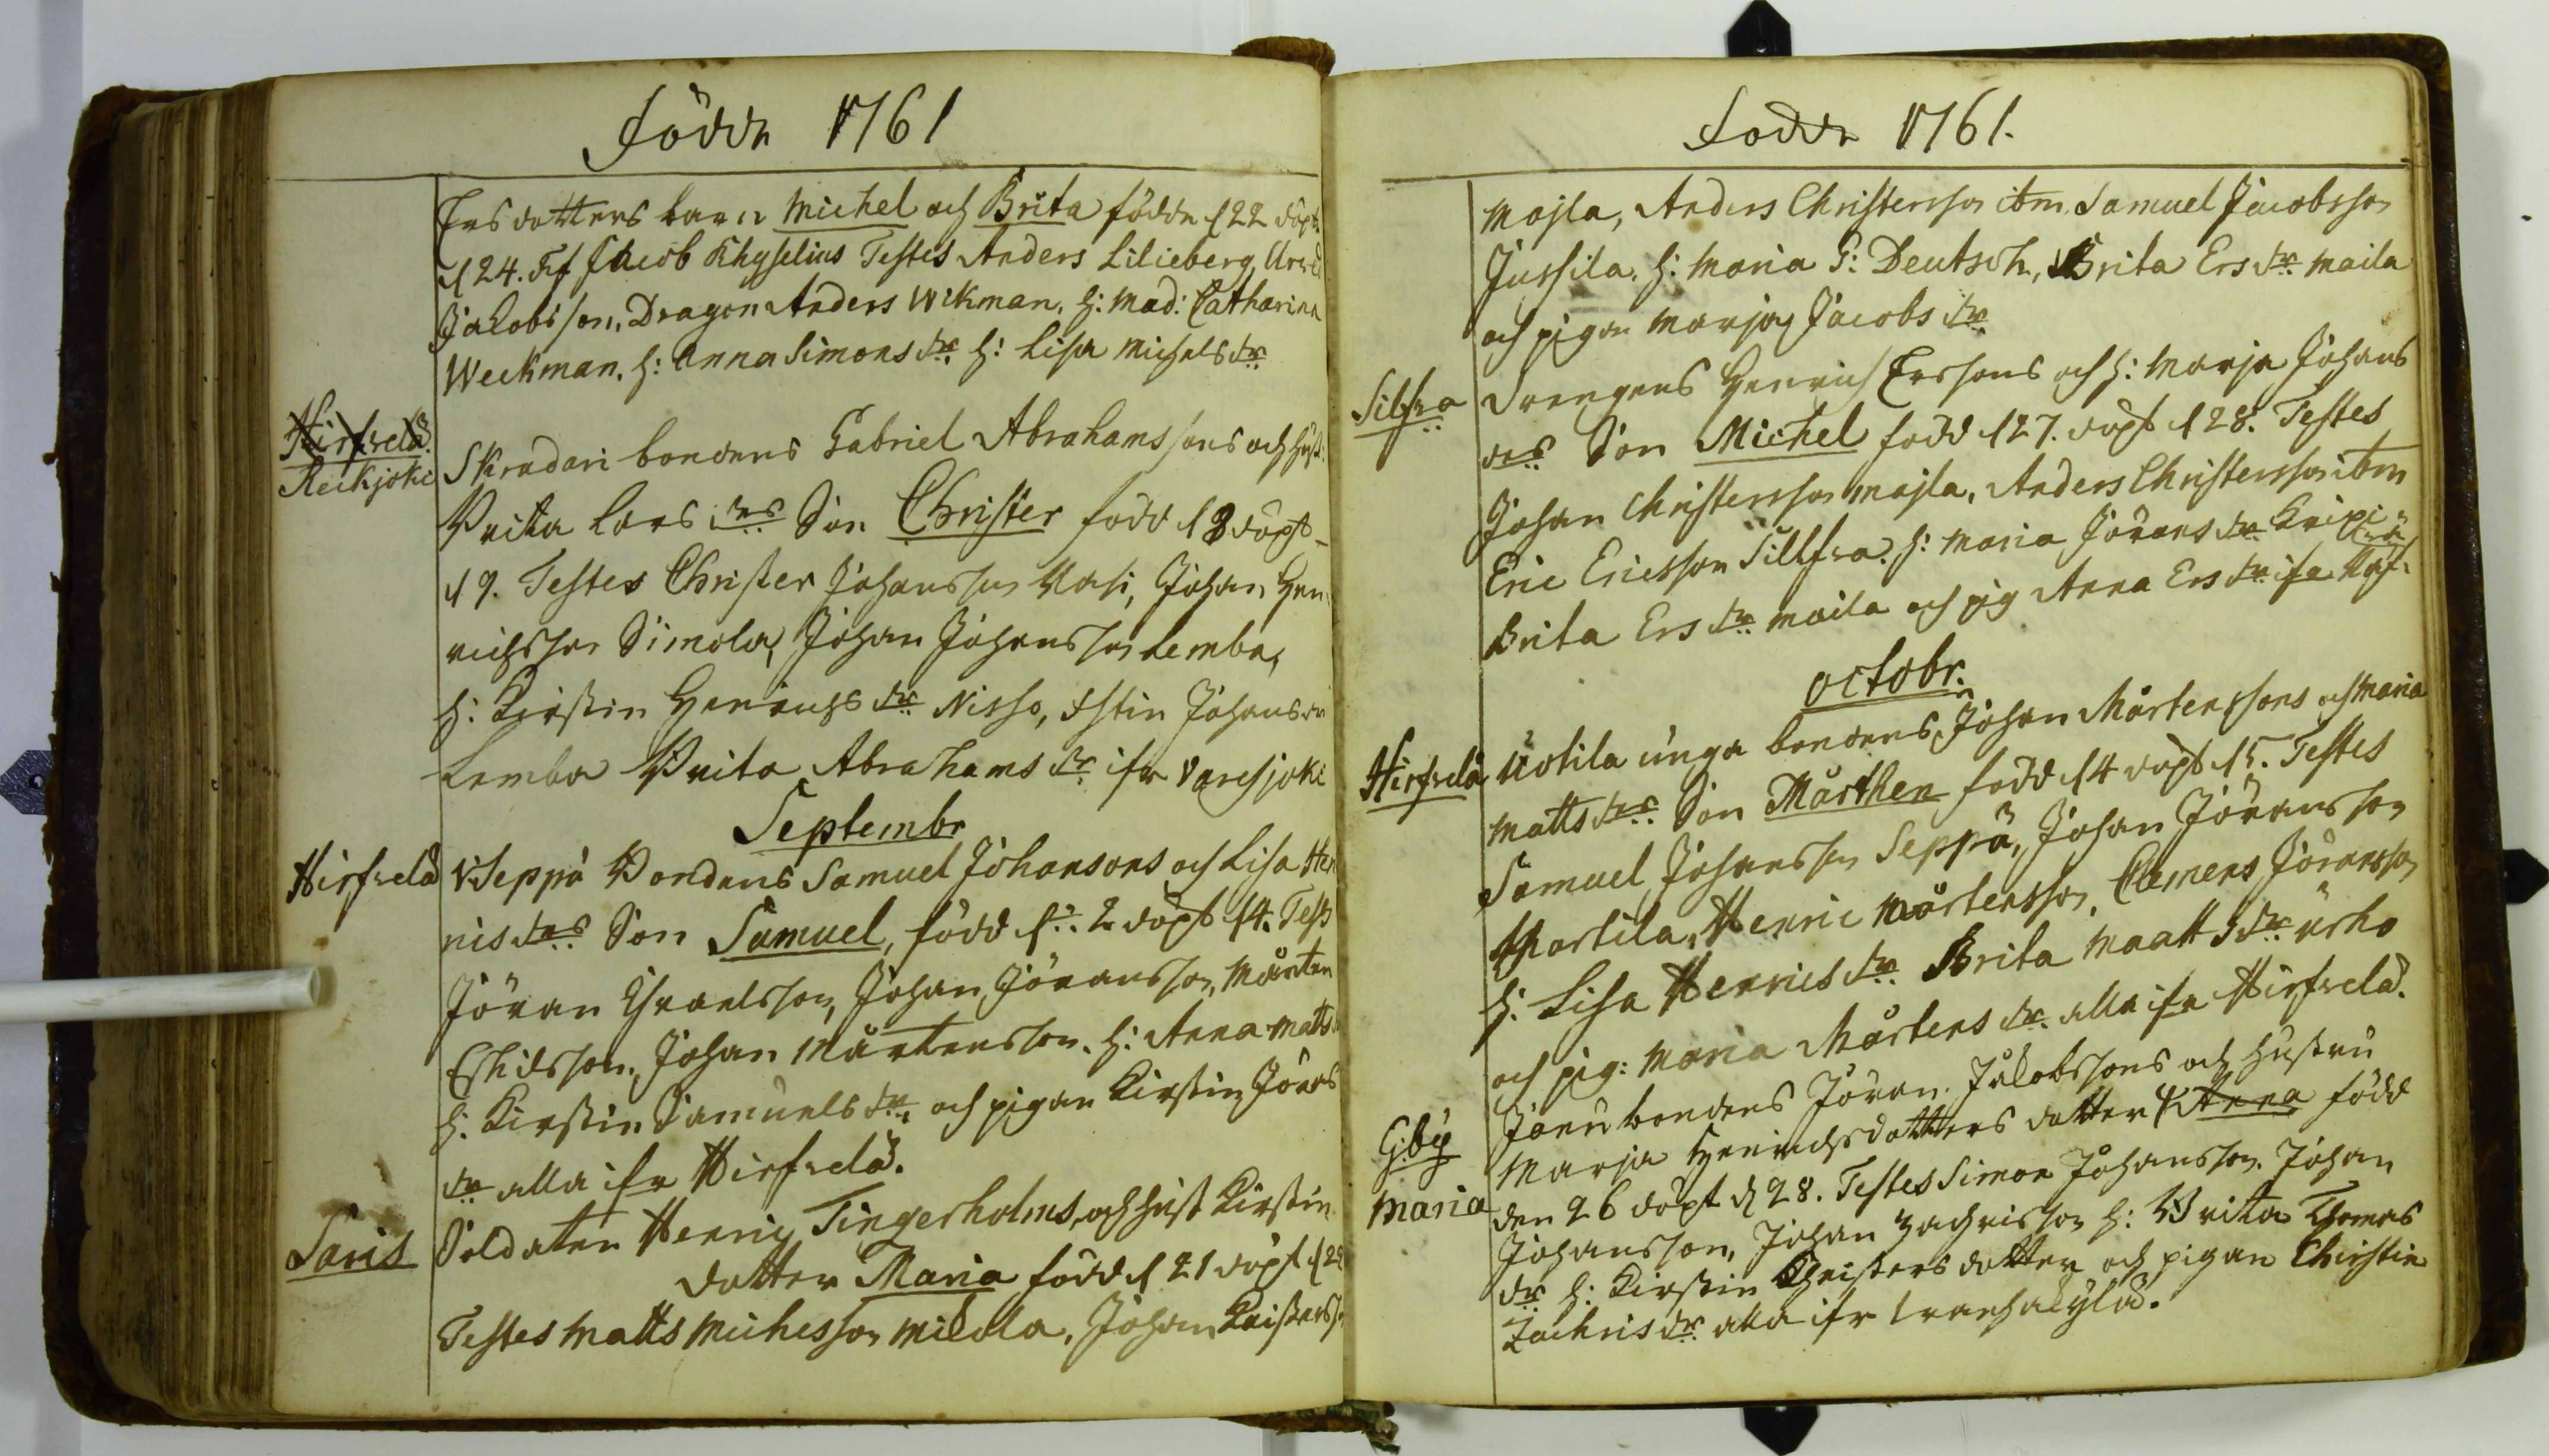 Födde 1761
Ersdotters barn Michel och Brita födde d 22 döpt
d 24. Ff Jacob Khyselius Testes Anders Lilieberg,
Jacobsson, Dragon Anders Wikman, h: Mad: Catharina
Weekman. h: Anna Simons dr. h: Lisa Michels dr.
Hirfvelä.
Reikjoki
Skradari bondens Gabriel Abrahamssons och hust.
Brita Lars drs Son Christer född d 8 döpt
d 9. Testes Christer Johansson Uasi, Johan Hen
richsson Simola, Johan Johansson Lemba,
h: Kirstin Henrichs dr Nisso, Johans dr
Lemba Brita Abrahams dr ifr Varesjoki
Septembr
Hirfvelä Seppä Bondens Samuel Johansons och Lisa Hen
nis drs Son Samuel, född d: 2 döpt d 4. Test
Jöran Israelsson, Johan Jöransson, Mårten
Eskilsson, Johan Mårtensson. h: Anna Matts
h: Kirstin Samuels dr. och pigan Kirstin Jörans
dr alla ifr Hirfvelä.
Saris Soldaten Henric Tingerholms, och hust Kirstin
dotter Maria född d 21 döpt d 25
Testes Matts Michesson Mickola, Johan Christersson
Födde 1761.
Majla, Anders Christersson itm. Samuel Jacobsson
Jussila. h: Maria G: Deutsch, Brita Ers dr Maila
och pigan Marja Jacobs dr
Silfra Drengens Henrich Erssons och h: Marja Johans
drs Son Michel född d 27. döpt d 28. Testes
Johan Christersson Majla, Anders Christersson itm
Eric Ericsson Sillfra. h: Maria Jörans dr
Brita Ers dr Maila och pig Anna Ers dr ifr
octobr.
Hirfvelä Uotila unga bondens, Johan Mårtenssons och Maria
Matts drs Son Mårthen född d 4 döpt d 5. Testes
Samuel Johansson Seppä, Johan Jöransson
Martila, Henric Mårtensson, Clemens Jöransson
h: Lisa Hennics dr. Brita Maatts dr Urho
och pig: Maria Mårtens dr. alla ifr Hirfvelä.
G:by Joru bondens Jöran Jacobssons och hustru
Marja Henrichsdotters dotter Anna född
Maria den 26 döpt d 28. Testes Simon Johansson. Johan
Johansson, Johan Zachrisson h: Brita Thomas
dr h: Kirstin Christers dotter och pigan Christin
Zachris dr alla ifr